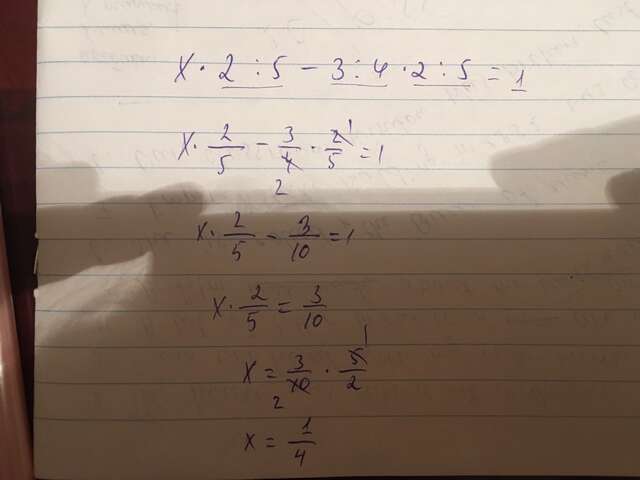 x · 2 : 5 - 3 : 4 · 2 : 5 = 1
x · 2/5 - 3/4 · 2/5 = 1
2 1
x · 2/5 - 3/10 = 1
x · 2/5 = 3/10
x = 3/10 · 5/2
2 1
x = 1/4